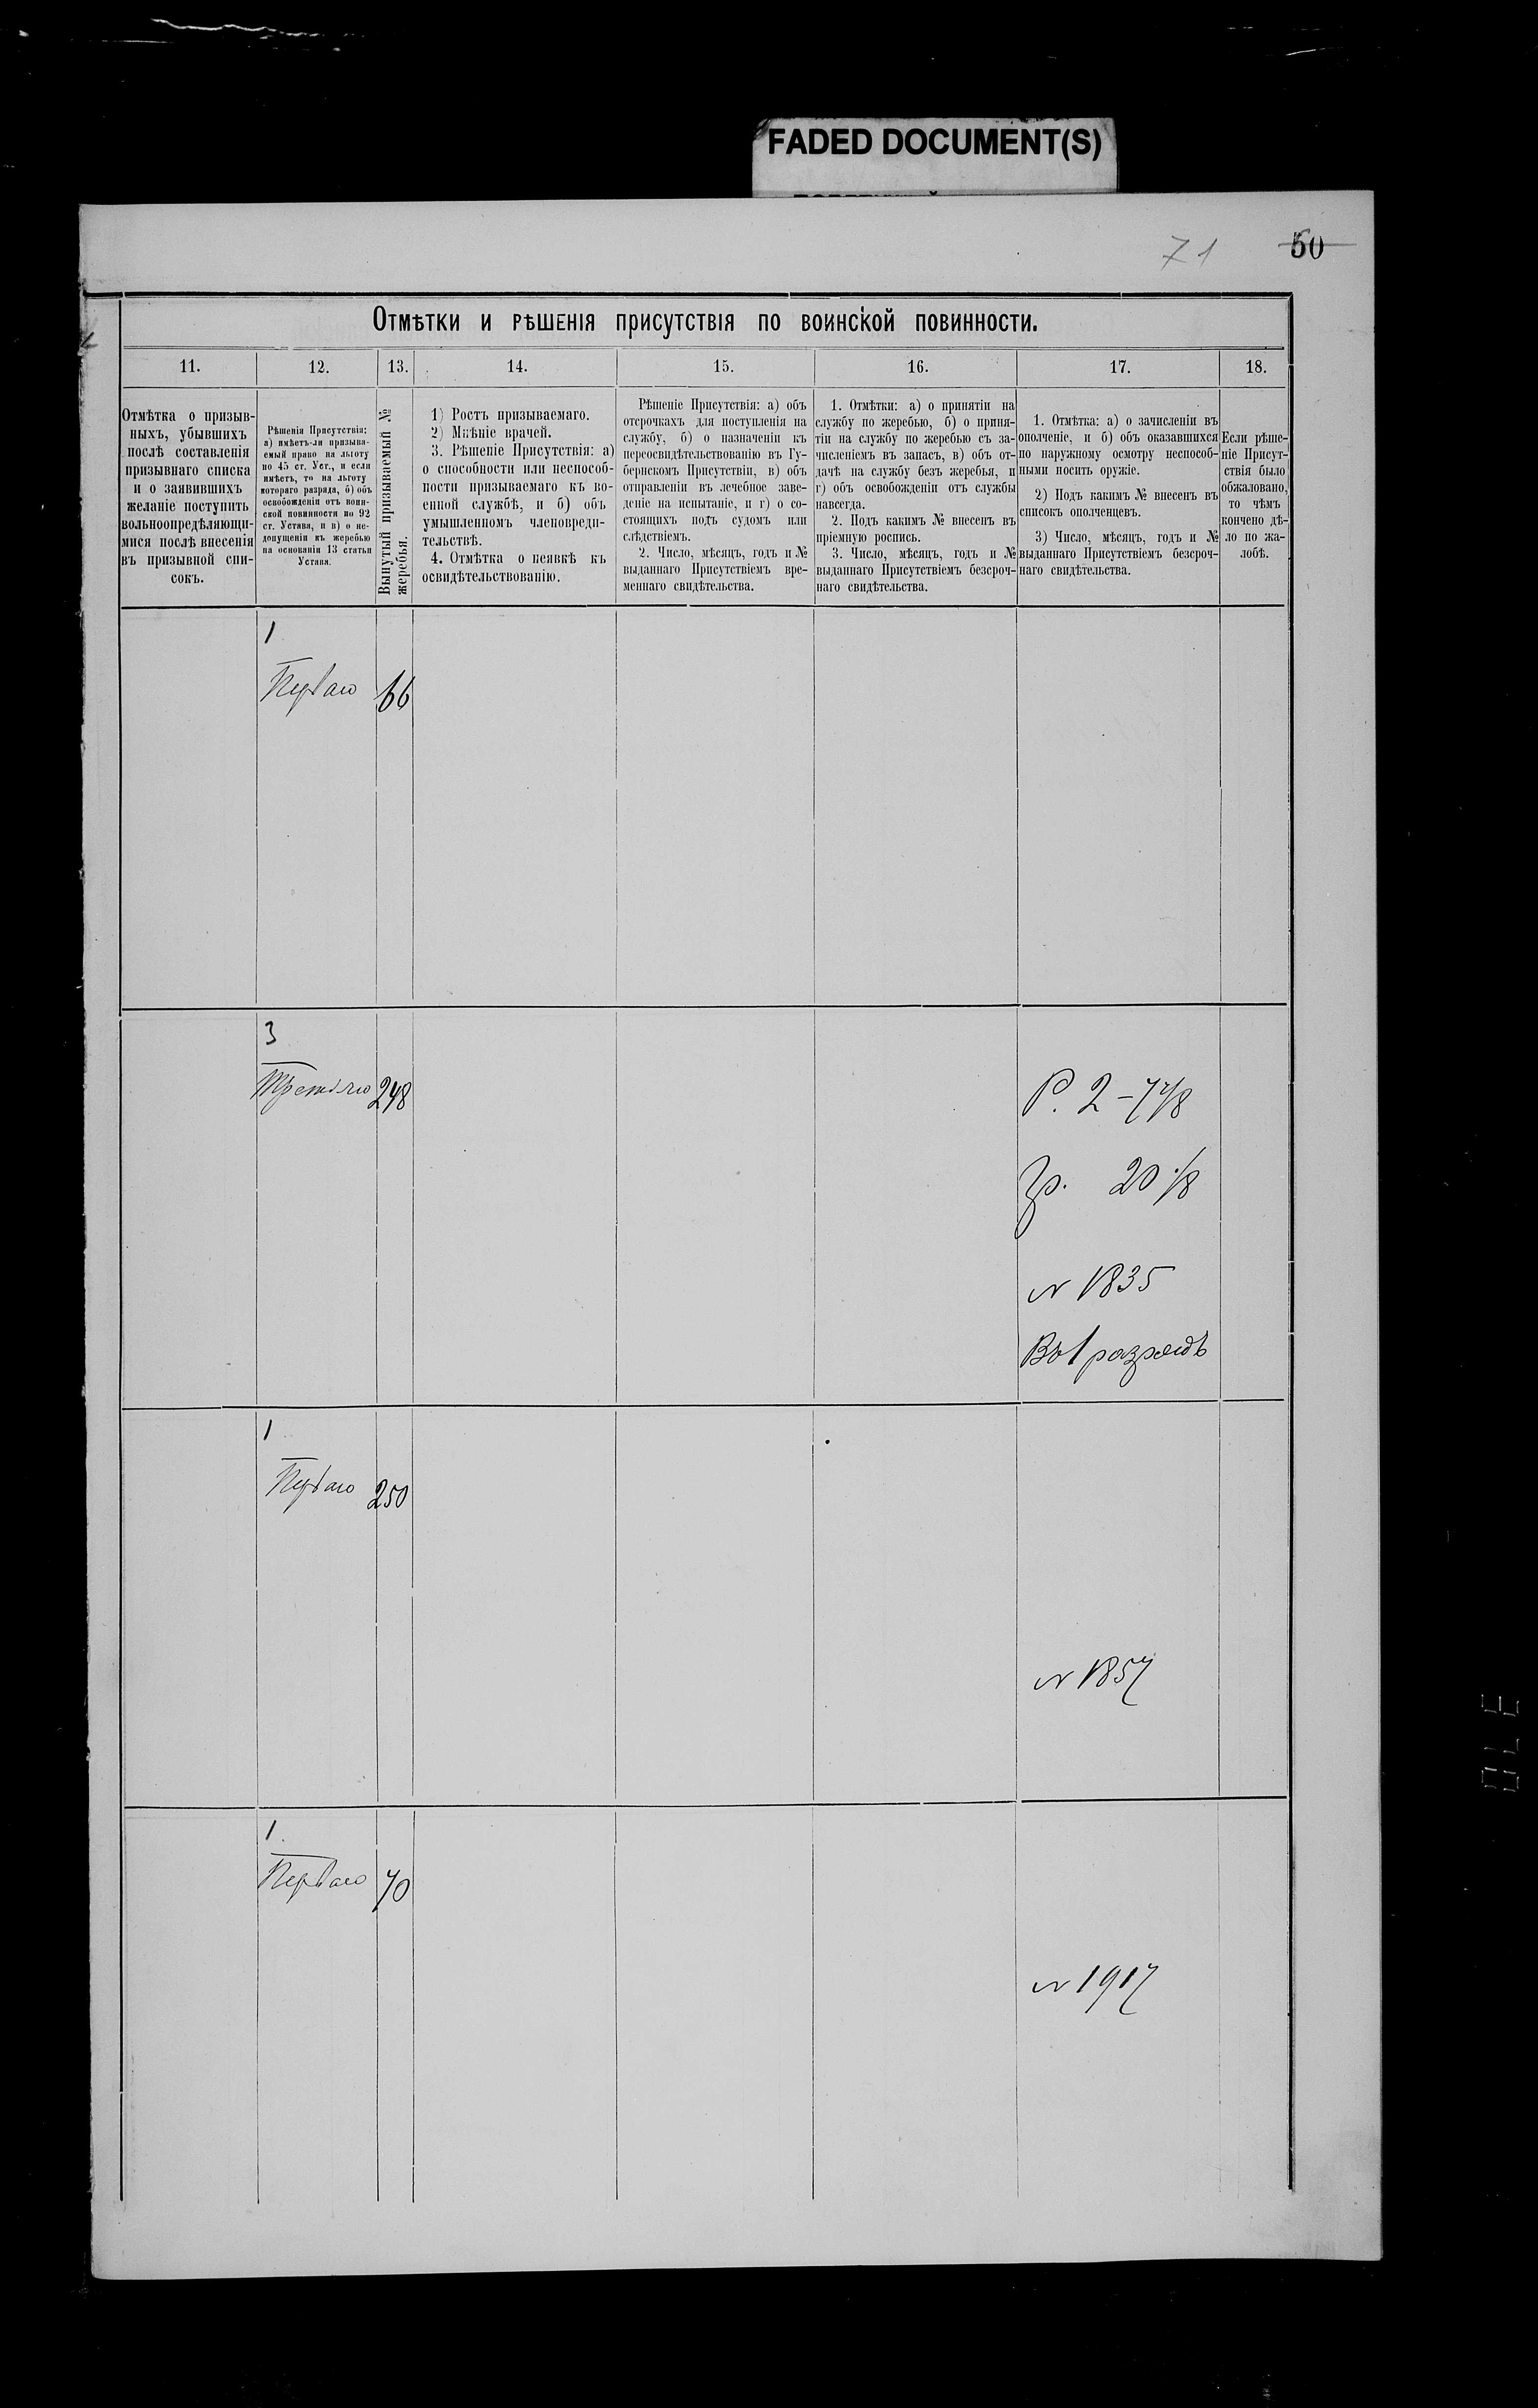 FADED DOCUMENT(S)
71
60
Отмѣтки и рѣшенія присутствія по воинской повинности.
11.
12.
13.
14.
15.
16.
17.
18.
Отмѣтка о призыв-
ныхъ, убывшихъ
послѣ составленія
призывнаго списка
и о заявившихъ
желаніе поступить
вольноопредѣляющи-
мися послѣ внесенія
въ призывной спи-
сокъ.
Рѣшенія Присутствія:
а) имѣетъ-ли призыва-
емый право на льготу
по 45 ст. Уст., и если
имѣетъ, то на льготу
котораго разряда, б) объ
освобожденіи отъ воин-
ской повинности по 92
ст. Устава, и в) о не-
допущеніи къ жеребью
на основаніи 13 статьи
Устава.
Вынутый призываемый №
жеребья.
1) Ростъ призываемаго.
2) Мнѣніе врачей.
3. Рѣшеніе Присутствія: а)
о способности или неспособ-
ности призываемаго къ во-
енной службѣ, и б) объ
умышленномъ членовреди-
тельствѣ.
4. Отмѣтка о неявкѣ къ
освидѣтельствованію.
Рѣшеніе Присутствія: а) объ
отсрочкахъ для поступленія на
службу, б) о назначеніи къ
переосвидѣтельствованію въ Гу-
бернскомъ Присутствіи, в) объ
отправленіи въ лечебное заве-
деніе на испытаніе, и г) о со-
стоящихъ подъ судомъ или
слѣдствіемъ.
2. Число, мѣсяцъ, годъ и №
выданнаго Присутствіемъ вре-
меннаго свидѣтельства.
1. Отмѣтки: а) о принятіи на
службу по жеребью, б) о приня-
тіи на службу по жеребью съ за-
численіемъ въ запасъ, в) объ от-
дачѣ на службу безъ жеребья, и
г) объ освобожденіи отъ службы
навсегда.
2. Подъ какимъ № внесенъ въ
пріемную роспись.
3. Число, мѣсяцъ, годъ и №
выданнаго Присутствіемъ безсроч-
наго свидѣтельства.
1. Отмѣтка: а) о зачисленіи въ
ополченіе, и б) объ оказавшихся
по наружному осмотру неспособ-
ными носить оружіе.
2) Подъ какимъ № внесенъ въ
списокъ ополченцевъ.
3) Число, мѣсяцъ, годъ и №
выданнаго Присутствіемъ безсроч-
наго свидѣтельства.
Если рѣше-
ніе Присут-
ствія было
обжаловано,
то чѣмъ
кончено дѣ-
ло по жа-
лобѣ.
1
Перваго 66
3
Третьяго 248
Р. 2 - 7 7/8
Гр. 20 1/8
№ 1835
Въ 1 разрядъ
1
Перваго 250
№ 1857
1
Перваго 70
№ 1917